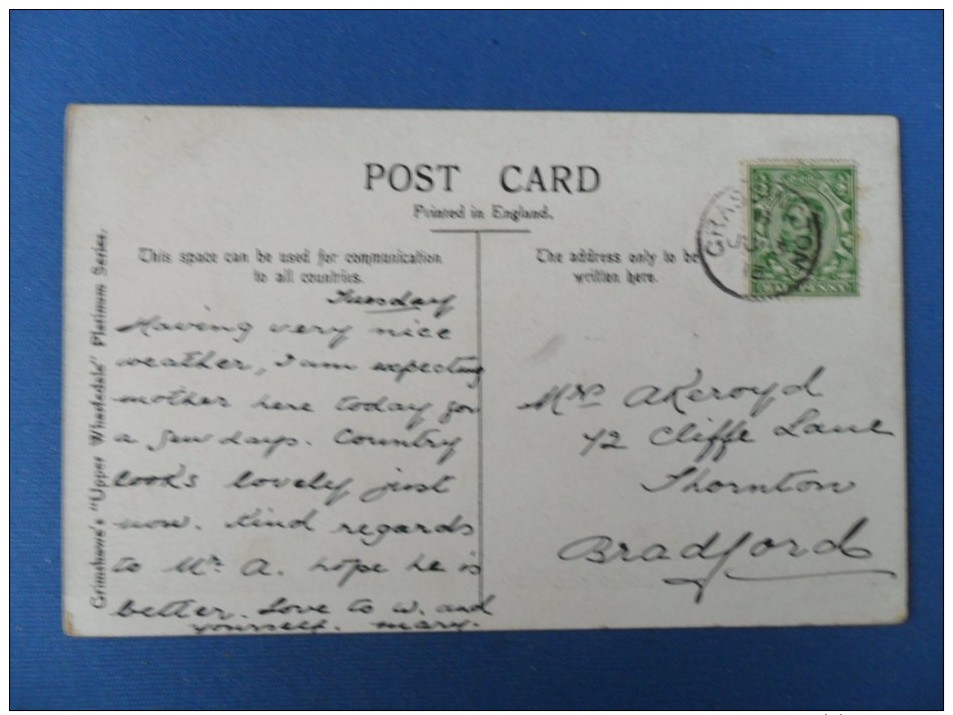 POST CARD
Printed in England.
This space can be used for communication
to all countries.
The address only to be
written here.
Grimshawe's "Upper Wharfedale" Platinum Series.
Tuesday
Having very nice
weather, I am expecting
mother here today for
a few days. Country
looks lovely just
now. Kind regards
to Mr. A. hope he is
better. Love to W. and
yourself. Mary.
Mrs Akeroyd
72 Cliffe Lane
Thornton
Bradford